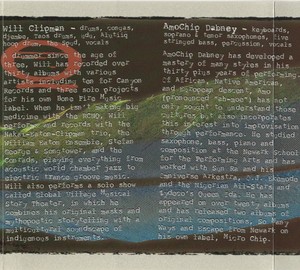 Will Clipman - drums, congas,
djembe, taos drum, udu,
vocals
A drummer since the age of
three, Will has recorded over
thirty albums with various
artists including ten for Canyon
Records and three solo projects
for his own Bone Fire Music
label. When he isn't making big
medicine music with
he tours and records with the
Nakai-Eaton-Clipman Trio, the
William Eaton Ensemble,
and the
playing everything from
acoustic world chamber jazz to
electric trance groove music.
Will also performs a solo show
called Global Village Musical
Story Theater, in which he
combines his original masks and
mythopoetic storytelling with a
multicultural soundscape of
indigenous instruments.
AmoChip Dabney - keyboards,
soprano & tenor saxophones, five
stringed bass, percussion, vocals
AmoChip Dabney has developed a
mastery of many styles in his
thirty plus years of performing
of African, Native American,
and European descent, Amo
(pronounced "ah-mo") has not
only sought to understand those
cultures but also incorporates
this interest into improvisation
through performance. He studied
saxophone, bass, piano and
composition at the Newark School
for the Performing Arts and has
worked with Sun Ra and his
Arkestra,
and the Nigerian All-Stars and
He has
appeared on over twenty albums
and has released two albums of
original compositions, So Many
Ways and Escape from Newark on
his own label, Micro Chip.